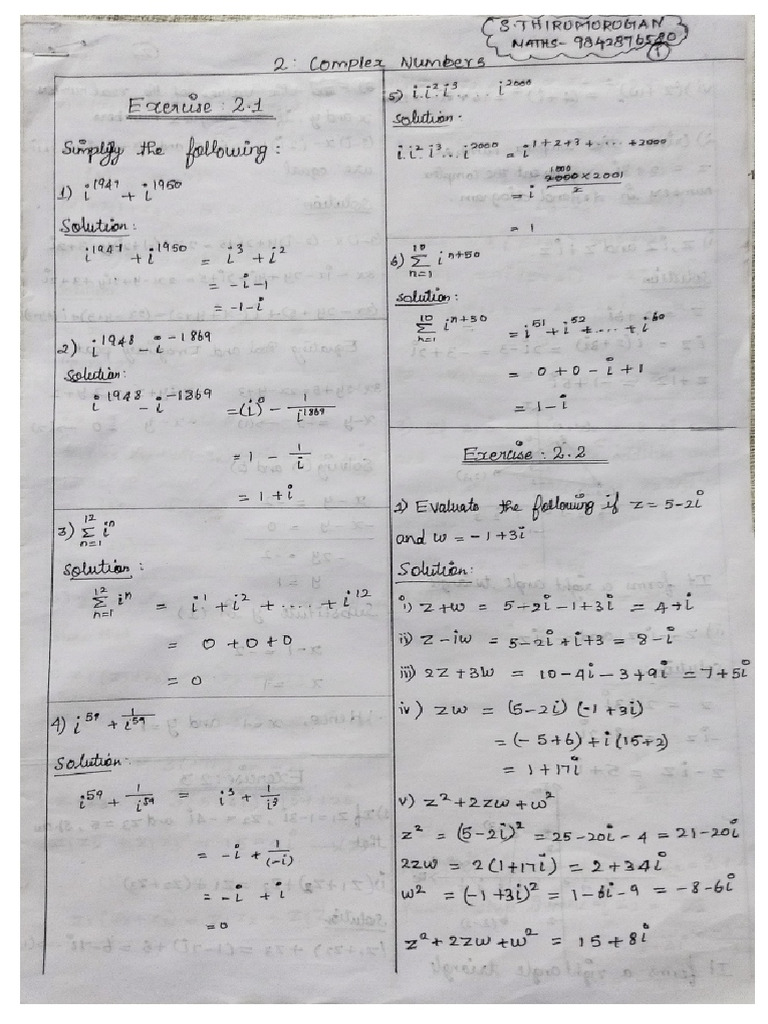 S. THIRUMURUGAN
MATHS - 9842876580
1
2. Complex Numbers
Exercise : 2.1
Simplify the following :
1) i^1947 + i^1950
Solution:
i^1947 + i^1950 = i^3 + i^2
= -i-1
= -1-i
2) i^1948 - i^-1869
Solution:
i^1948 - i^-1869 = (i)^0 - 1/i^1869
= 1 - 1/i
= 1+i
3) Σ_{n=1}^{12} i^n
Solution :
Σ_{n=1}^{12} i^n = i^1 + i^2 + .... + i^12
= 0+0+0
= 0
4) i^59 + 1/i^59
Solution:
i^59 + 1/i^59 = i^3 + 1/i^3
= -i + 1/(-i)
= -i + i
= 0
5) i. i^2. i^3 i^2000
Solution -
i. i^2 i^3 ... i^2000 = i^1+2+3+.....+2000
= i^(1000 2000×2001/2)
= 1
6) Σ_{n=1}^{10} i^n+50
Solution :
Σ_{n=1}^{10} i^n+50 = i^51 + i^52 + .... + i^60
= 0+0-i+1
= 1-i
Exercise : 2.2
1) Evaluate the following if z = 5-2i
and w = -1+3i
Solution:
i) z+w = 5-2i-1+3i = 4+i
ii) z-iw = 5-2i+i+3 = 8-i
iii) 2z+3w = 10-4i-3+9i = 7+5i
iv) zw = (5-2i) (-1+3i)
= (-5+6) + i(15+2)
= 1+17i
v) z^2+2zw+w^2
z^2 = (5-2i)^2 = 25-20i-4 = 21-20i
2zw = 2(1+17i) = 2+34i
w^2 = (-1+3i)^2 = 1-6i-9 = -8-6i
z^2+2zw+w^2 = 15+8i